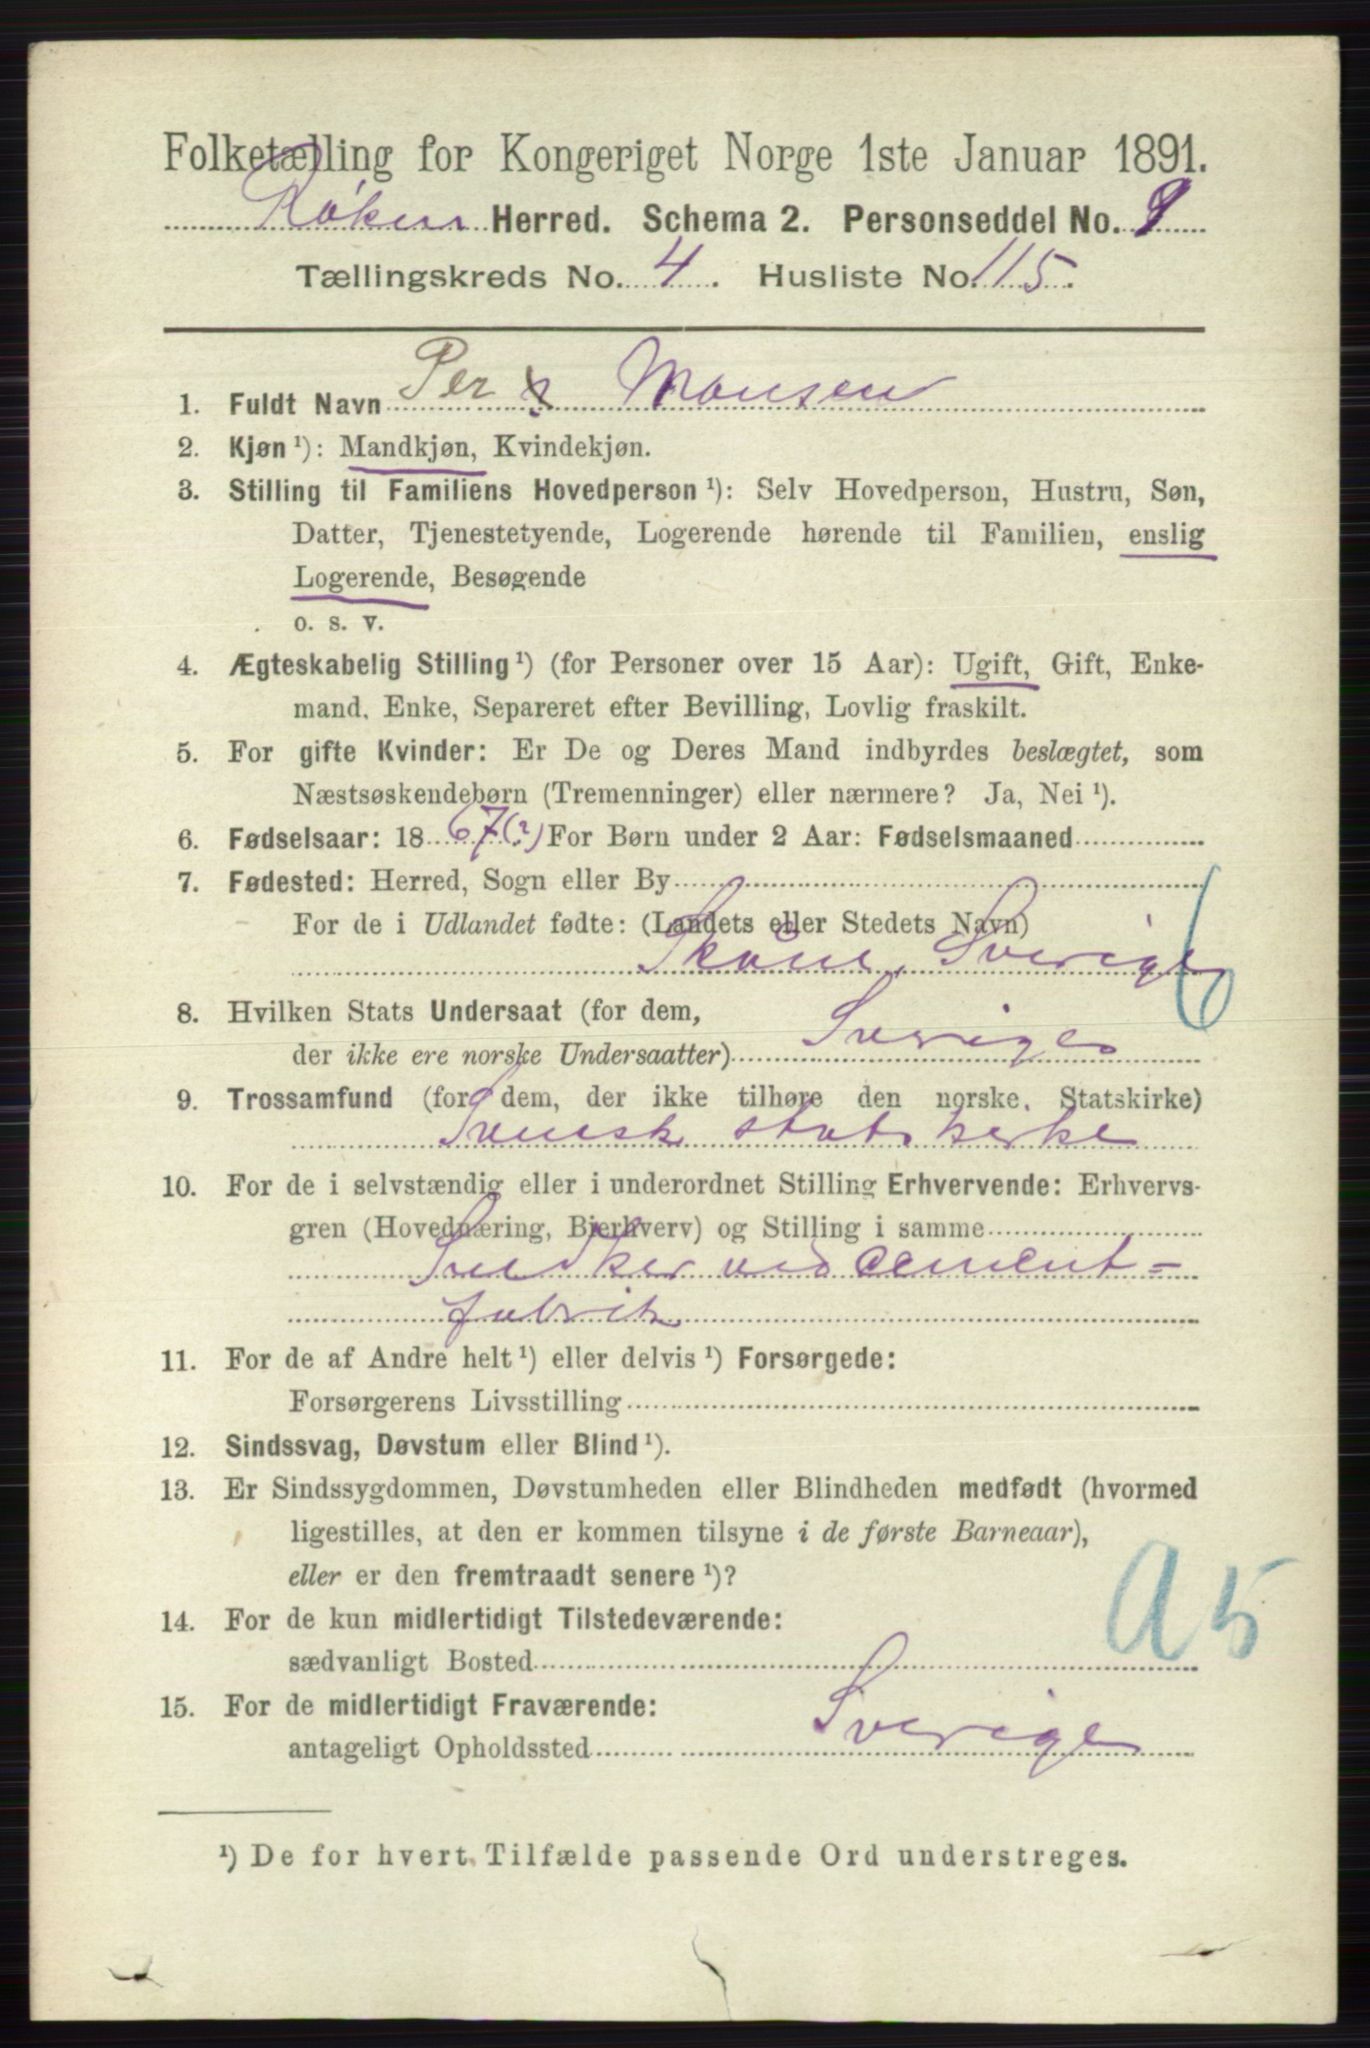 Folketælling for Kongeriget Norge 1ste Januar 1891.
Røken Herred. Schema 2. Personseddel No. 9
Tællingskreds No. 4. Husliste No. 115.
1. Fuldt Navn Per Monsen
2. Kjøn ¹): Mandkjøn, Kvindekjøn.
3. Stilling til Familiens Hovedperson ¹): Selv Hovedperson, Hustru, Søn,
Datter, Tjenestetyende, Logerende hørende til Familien, enslig
Logerende, Besøgende
o. s. v.
4. Ægteskabelig Stilling ¹) (for Personer over 15 Aar): Ugift, Gift, Enke-
mand, Enke, Separeret efter Bevilling, Lovlig fraskilt.
5. For gifte Kvinder: Er De og Deres Mand indbyrdes beslægtet, som
Næstsøskendebørn (Tremenninger) eller nærmere? Ja, Nei ¹).
6. Fødselsaar: 1867(?) For Børn under 2 Aar: Fødselsmaaned
7. Fødested: Herred, Sogn eller By
For de i Udlandet fødte: (Landets eller Stedets Navn)
Skåne, Sverige
8. Hvilken Stats Undersaat (for dem, Sveriges
der ikke ere norske Undersaatter)
9. Trossamfund (for dem, der ikke tilhøre den norske Statskirke)
Svensk statskirke
10. For de i selvstændig eller i underordnet Stilling Erhvervende: Erhvervs-
gren (Hovednæring, Bierhverv) og Stilling i samme
Snedker ved cement-
fabrik
11. For de af Andre helt ¹) eller delvis ¹) Forsørgede:
Forsørgerens Livsstilling
12. Sindssvag, Døvstum eller Blind ¹).
13. Er Sindssygdommen, Døvstumheden eller Blindheden medfødt (hvormed
ligestilles, at den er kommen tilsyne i de første Barneaar),
eller er den fremtraadt senere ¹)?
A5
14. For de kun midlertidigt Tilstedeværende:
sædvanligt Bosted
15. For de midlertidigt Fraværende:
antageligt Opholdssted Sverige
¹) De for hvert Tilfælde passende Ord understreges.